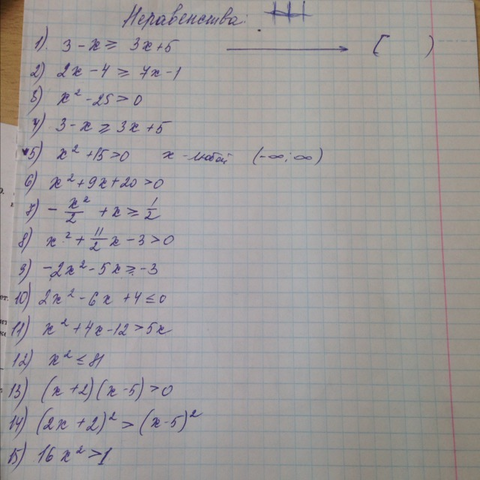 Неравенства:
1) 3 - x ≥ 3x + 5 [ )
2) 2x - 4 ≥ 7x - 1
3) x² - 25 > 0
4) 3 - x ≥ 3x + 5
5) x² + 15 > 0 x - любой (-∞; ∞)
6) x² + 9x + 20 > 0
7) - x²/2 + x ≥ 1/2
8) x² + 11/2 x - 3 > 0
9) -2x² - 5x ≥ -3
10) 2x² - 6x + 4 ≤ 0
11) x² + 4x - 12 > 5x
12) x² ≤ 81
13) (x + 2)(x - 5) > 0
14) (2x + 2)² > (x - 5)²
15) 16x² > 1